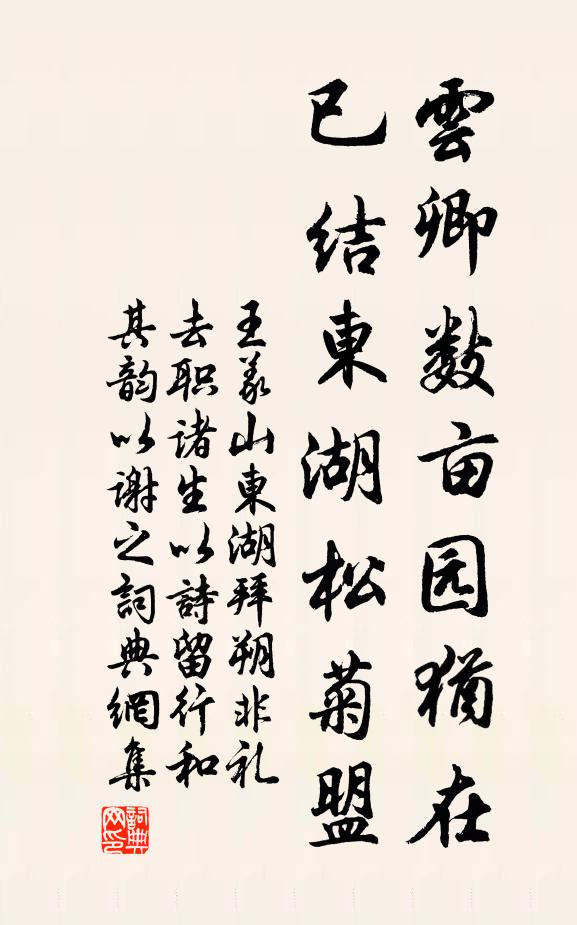 雲卿数亩园猶在
已结東湖松菊盟
王义山東湖拜朔非礼
去职诸生以詩留行和
其韵以谢之詞典網集
詞典網印